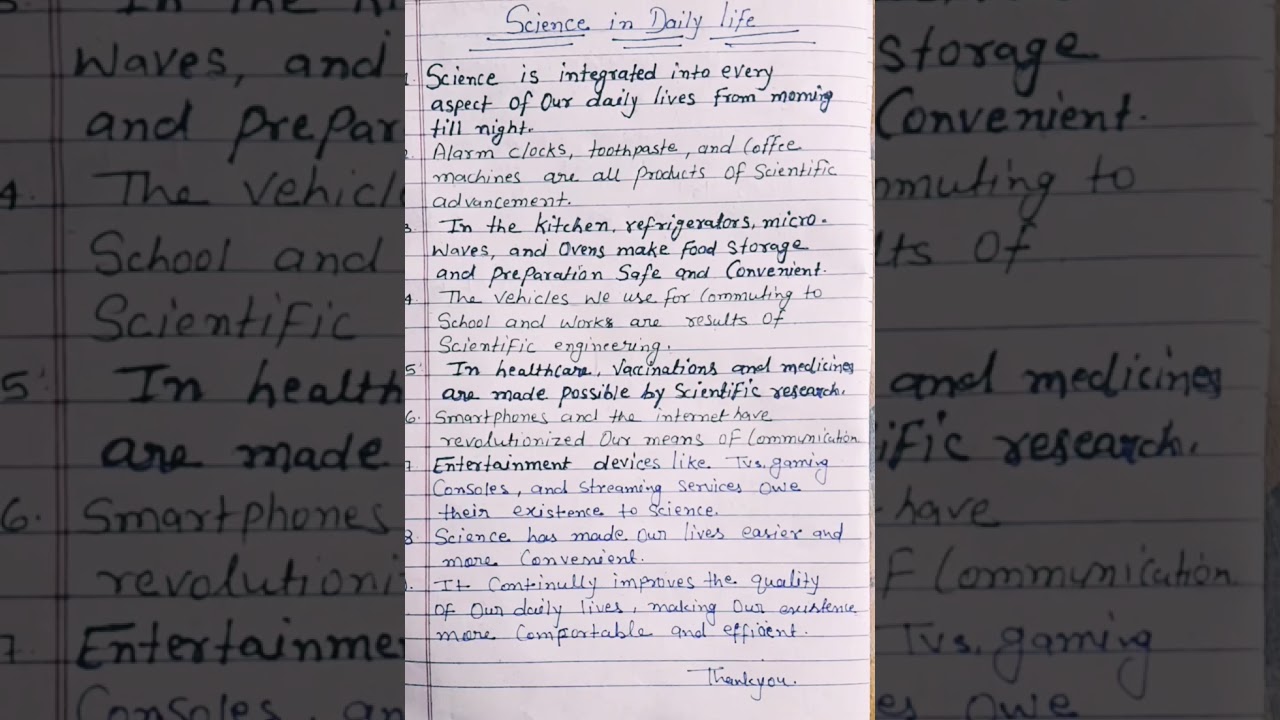 Science in Daily life
1. Science is integrated into every
aspect of Our daily lives from morning
till night.
2. Alarm clocks, toothpaste, and Coffee
machines are all Products of Scientific
advancement.
3 In the Kitchen, refrigerators, micro-
waves, and Ovens make food Storage
and preparation Safe and Convenient.
4. The vehicles we use for Commuting to
School and works are results of
Scientific engineering.
5. In healthcare, Vaccinations and medicines
are made possible by Scientific research.
6. Smartphones and the internet have
revolutionized Our means of Communication
7. Entertainment devices like TVs. gaming
Consoles, and streaming Services Owe
their existence to Science.
8. Science has made Our lives easier and
more Convenient.
. It Continully improves the quality
of Our daily lives, making Our existence
more Comfortable and efficent.
Thankyou.